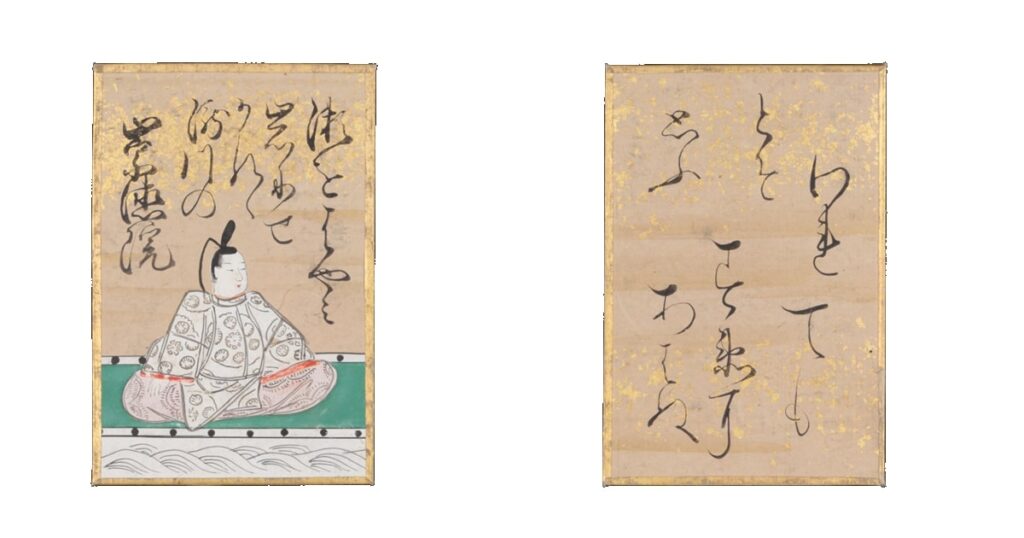 瀬をはやみ
岩にせ
かるゝ
瀧川の
崇徳院
われても
すゑに
あはむ
とそ
思ふ